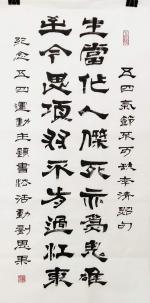 五四氣節不可缺李清照句
生當作人傑死亦為鬼雄
至今思項羽不肯過江東
紀念五四運動主題書法活動劉思